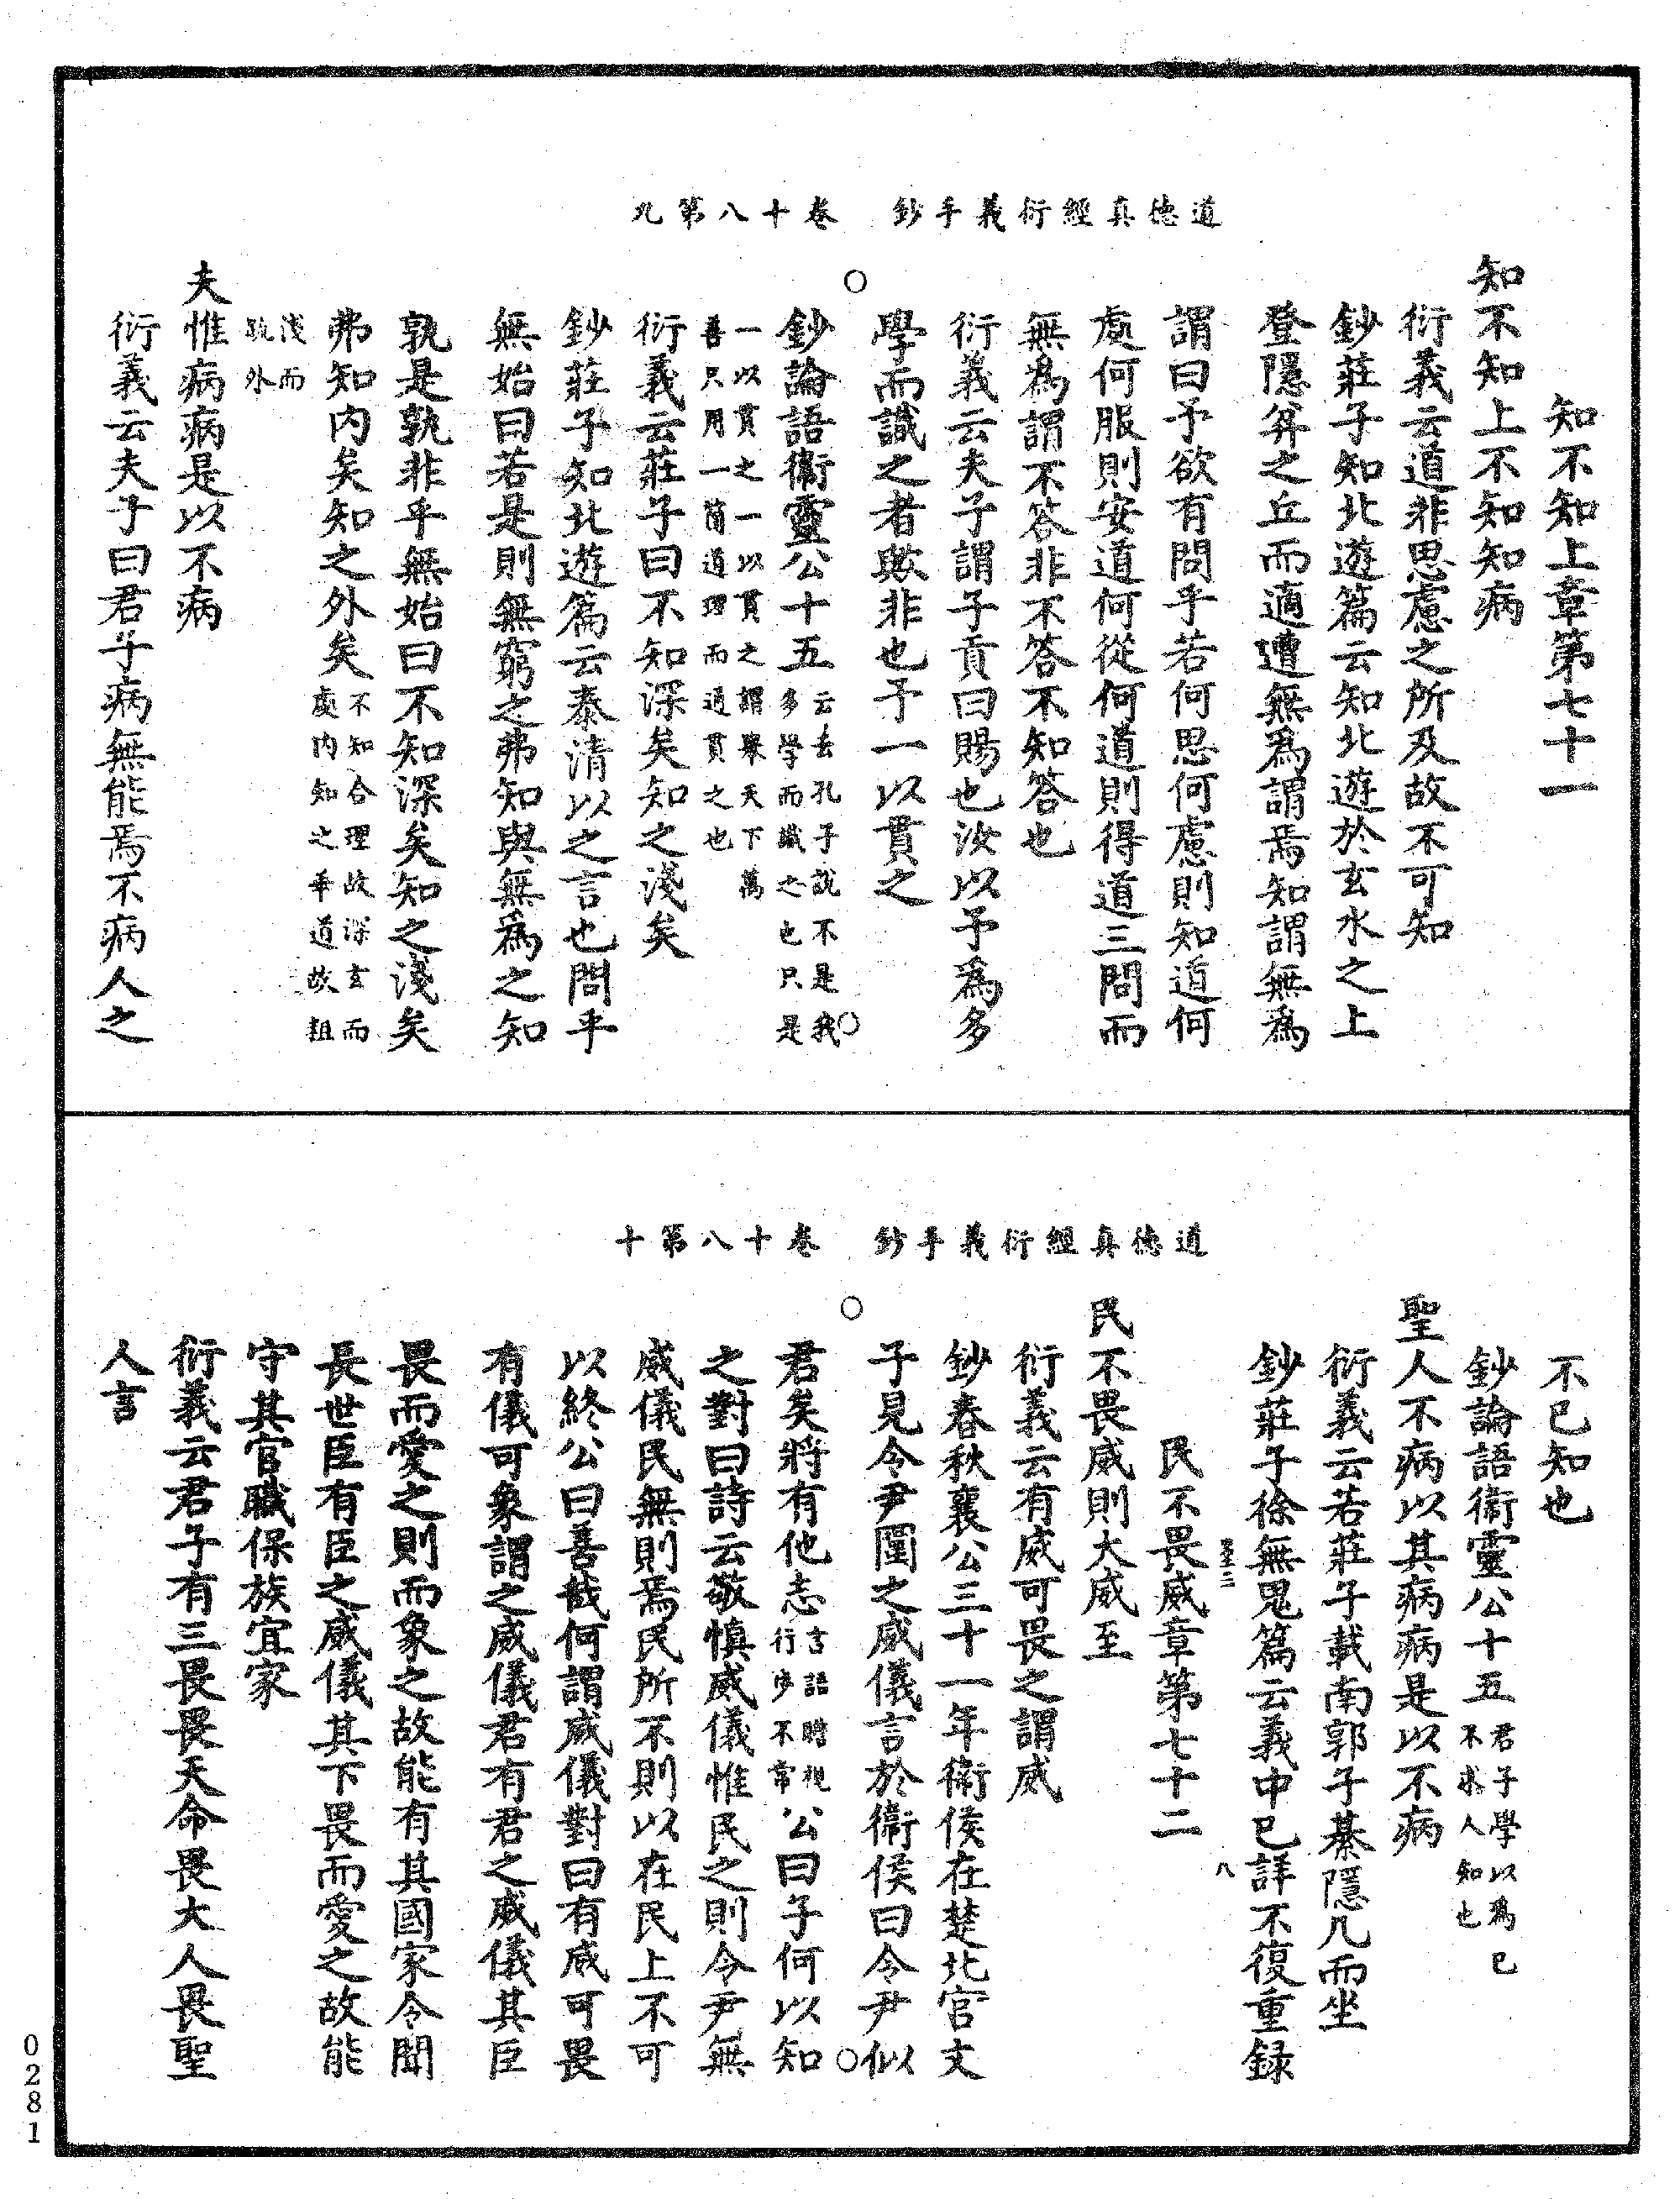 道德真經衍義手鈔　卷十八第九
知不知上章第七十一
知不知上不知知病
衍義云道非思慮之所及故不可知
鈔莊子知北遊篇云知北遊於玄水之上
登隱弅之丘而適遭無爲謂焉知謂無爲
謂曰予欲有問乎若何思何慮則知道何
處何服則安道何從何道則得道三問而
無爲謂不答非不答不知答也
衍義云夫子謂子貢曰賜也汝以予爲多
學而識之者歟非也予一以貫之
鈔論語衞靈公十五云去孔子說不是我
多學而識之也只是
一以貫之一以貫之謂舉天下萬
善只用一箇道理而通貫之也
衍義云莊子曰不知深矣知之淺矣
鈔莊子知北遊篇云泰清以之言也問乎
無始曰若是則無窮之弗知與無爲之知
孰是孰非乎無始曰不知深矣知之淺矣
弗知内矣知之外矣不知合理故深玄而
處内知之乖道故䵿
淺而
疏外
夫惟病病是以不病
衍義云夫子曰君子病無能焉不病人之
道德真經衍義手鈔　卷十八第十
不已知也
鈔論語衞靈公十五君子學以爲已
不求人知也
聖人不病以其病病是以不病
衍義云若莊子載南郭子綦隱几而坐
鈔莊子徐無鬼篇云義中已詳不復重録
八
民不畏威章第七十二
民不畏威則大威至
衍義云有威可畏之謂威
鈔春秋襄公三十一年衞侯在楚北宮文
子見令尹圍之威儀言於衞侯曰令尹似
君矣將有他志言語瞻視
行步不常公曰子何以知
之對曰詩云敬慎威儀惟民之則令尹無
威儀民無則焉民所不則以在民上不可
以終公曰善哉何謂威儀對曰有威可畏
有儀可象謂之威儀君有君之威儀其臣
畏而愛之則而象之故能有其國家令聞
長世臣有臣之威儀其下畏而愛之故能
守其官職保族宜家
衍義云君子有三畏畏天命畏大人畏聖
人言
0281